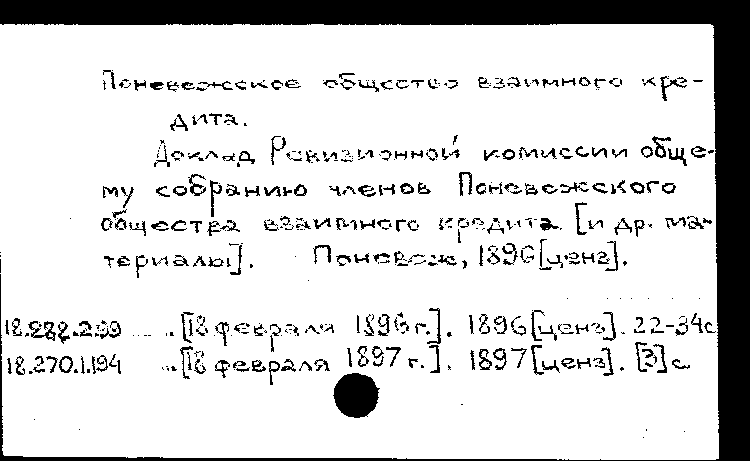 Поневежское общество взаимного кре-
дита.
Доклад Ревизионной комиссии обще-
му собранию членов Поневежского
общества взаимного кредита [и др. ма-
териалы]. Поневеж, 1896[ценз].
18.282.2.99 ... [18 февраля 1896 г.]. 1896[ценз]. 22-34с
18.270.1.194 ... [18 февраля 1897 г.]. 1897[ценз]. [3]с.